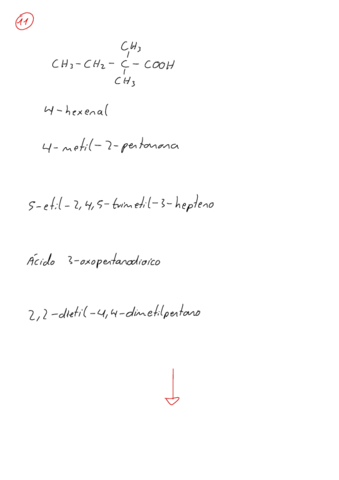 11
CH3
CH3-CH2-C-COOH
CH3
4-hexenal
4-metil-2-pentanona
5-etil-2,4,5-trimetil-3-hepteno
Ácido 3-oxopentanodioico
2,2-dietil-4,4-dimetilpentano